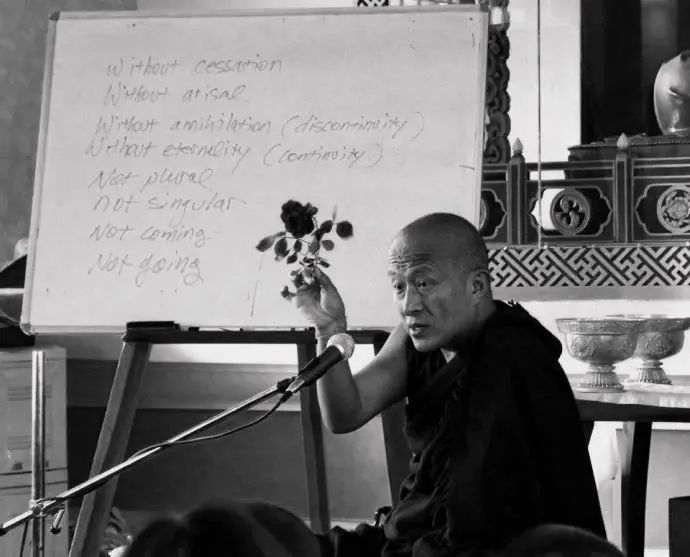 Without cessation
Without arisal
Without annihilation (discontinuity)
Without eternality (continuity)
Not plural
not singular
Not coming
Not going